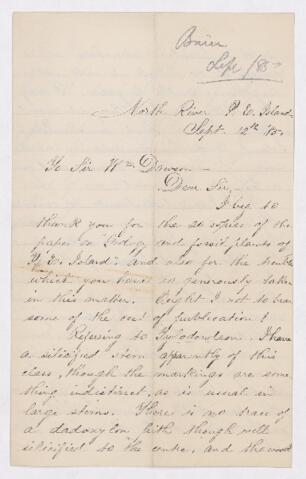 Bain
Sept /85
North River P. E. Island
Sept. 12th /85.
To Sir Wm Dawson —
Dear Sir, —
I beg to
thank you for the 20 copies of the
paper on Geology and fossil plants of
P. E. Island; and also for the trouble
which you have so generously taken
in this matter. Ought I not to bear
some of the cost of publication?
Refering to Tylodendron. I have
a silicified stem apparently of this
class, though the markings are some
thing indistinct, as is usual in
large stems. There is no trace of
a dadoxylon pith though well
silicified to the centre, and the wood